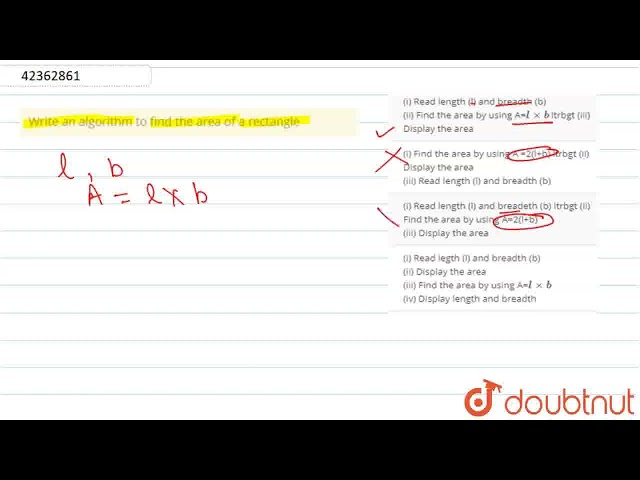 42362861
Write an algorithm to find the area of a rectangle
l , b
A = l × b
(i) Read length (l) and breadth (b)
(ii) Find the area by using A=l × b ltrbgt (iii)
Display the area
(i) Find the area by using A =2(l+b) ltrbgt (ii)
Display the area
(iii) Read length (l) and breadth (b)
(i) Read length (l) and breadeth (b) ltrbgt (ii)
Find the area by using A=2(l+b)
(iii) Display the area
(i) Read legth (l) and breadth (b)
(ii) Display the area
(iii) Find the area by using A=l × b
(iv) Display length and breadth
doubtnut